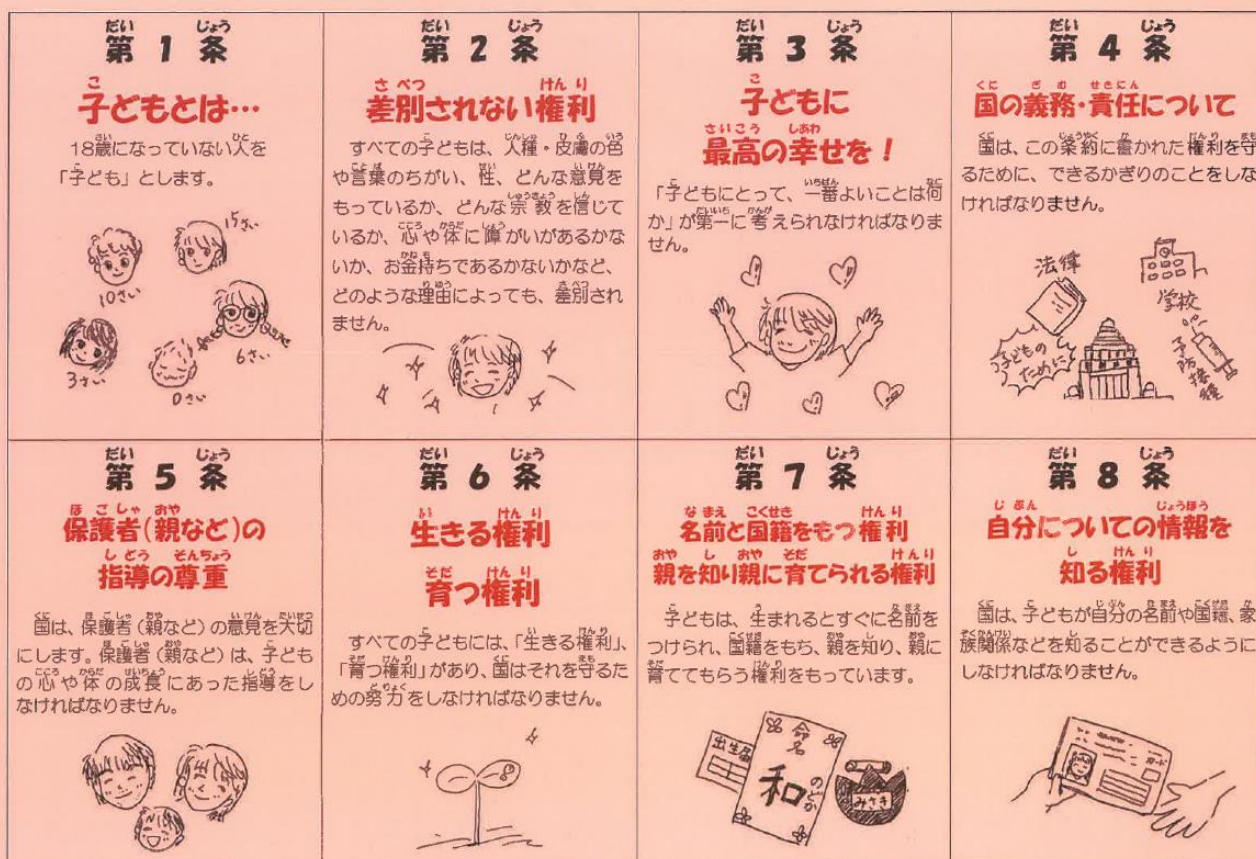 第1条
子どもとは…
18歳になっていない人を
「子ども」とします。
15さい
10さい
6さい
3さい
0さい
第2条
差別されない権利
すべての子どもは、人種・皮膚の色
や言葉のちがい、性、どんな意見を
もっているか、どんな宗教を信じて
いるか、心や体に障がいがあるかな
いか、お金持ちであるかないかなど、
どのような理由によっても、差別され
ません。
第3条
子どもに
最高の幸せを！
「子どもにとって、一番よいことは何
か」が第一に考えられなければなりま
せん。
第4条
国の義務・責任について
国は、この条約に書かれた権利を守
るために、できるかぎりのことをしな
ければなりません。
法律
学校
子どもの
ために
予防接種
第5条
保護者（親など）の
指導の尊重
国は、保護者（親など）の意見を大切
にします。保護者（親など）は、子ども
の心や体の成長にあった指導をし
なければなりません。
第6条
生きる権利
育つ権利
すべての子どもには、「生きる権利」、
「育つ権利」があり、国はそれを守るた
めの努力をしなければなりません。
第7条
名前と国籍をもつ権利
親を知り親に育てられる権利
子どもは、生まれるとすぐに名前を
つけられ、国籍をもち、親を知り、親に
育ててもらう権利をもっています。
出生届
命名
和
のどか
みさき
第8条
自分についての情報を
知る権利
国は、子どもが自分の名前や国籍、家
族関係などを知ることができるように
しなければなりません。
カード